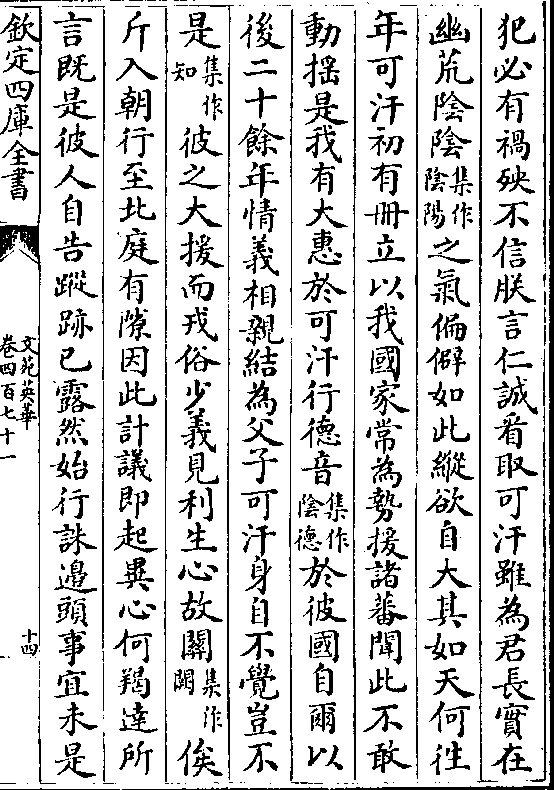 犯必有禍殃不信朕言仁誠看取可汗雖為君長實在
幽荒陰陰集作陰陽之氣偏僻如此縱欲自大其如天何徃
年可汗初有冊立以我國家常為勢援諸蕃聞此不敢
動揺是我有大惠於可汗行德音集作陰德於彼國自爾以
後二十餘年情義相親結為父子可汗身自不覺豈不
是集作知彼之大援而戎俗少義見利生心故闗集作闕俟
斤入朝行至北庭有隙因此計議即起異心何羯達所
言既是彼人自告蹤跡已露然始行誅邉頭事宜未是
欽定四庫全書
文苑英華
卷四百七十一
十四